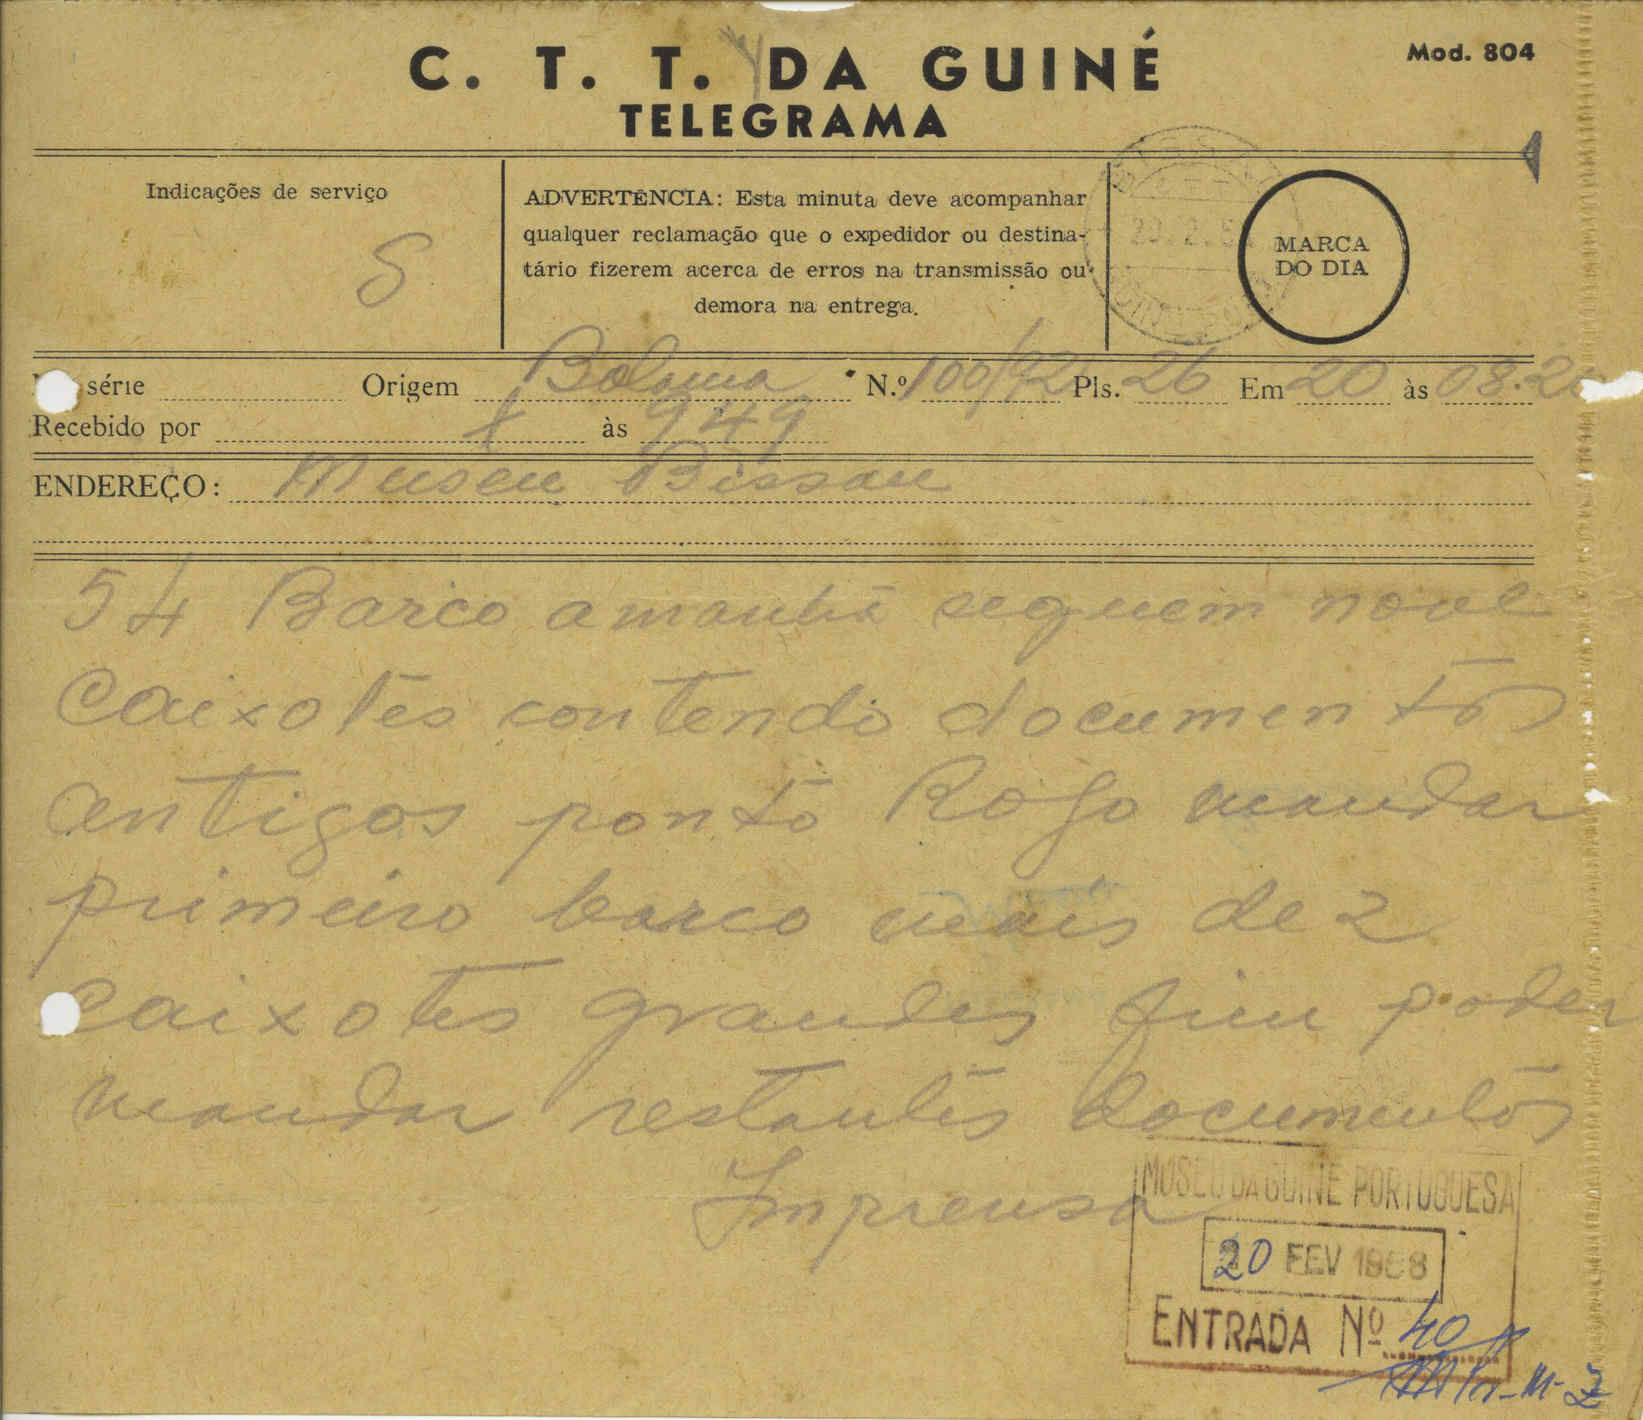 C. T. T. DA GUINÉ
Mod. 804
TELEGRAMA
Indicações de serviço
S
ADVERTÊNCIA: Esta minuta deve acompanhar
qualquer reclamação que o expedidor ou destina-
tário fizerem acerca de erros na transmissão ou
demora na entrega.
MARCA
DO DIA
série Origem Bolama N.º 100/92 Pls. 26 Em 20 às 08.2
Recebido por às 949
ENDEREÇO: Museu Bissau
54 Barco amanhã seguem nove
caixotes contendo documentos
antigos ponto Rogo mandar
primeiro barco mais de 2
caixotes grandes fim poder
mandar restantes documentos
Imprensa
MUSEU DA GUINÉ PORTUGUESA
20 FEV 1968
ENTRADA Nº 40